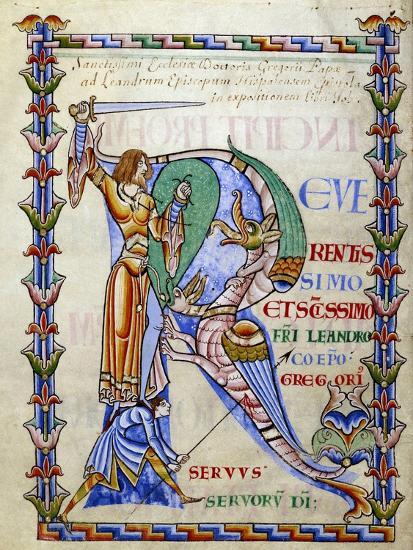 Sanctissimi Ecclesiæ Doctoris Gregorii Papæ
ad Leandrum Episcopum Hispalensem Epistola
in expositionem libri Iob.
R EVE
RENTIS
SIMO
ET SC̄ISSIMO
FR̄I LEANDRO
COEP̄O:
GREGORIꝰ
SERVVS
SERVORV̄ DĪ: